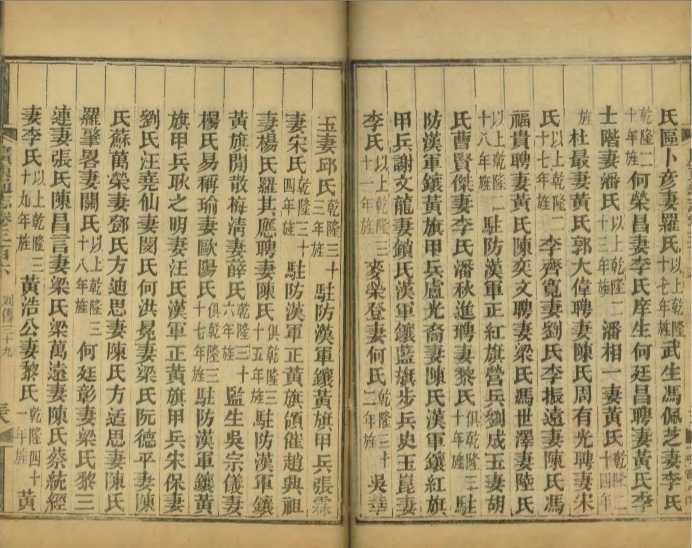 氏區卜彥妻羅氏乾隆二十七年旌武生馮佩芝妻李氏
乾隆二十年旌何榮昌妻李氏庠生何廷昌聘妻黃氏李
士階妻潘氏以上乾隆二十三年旌潘相一妻黃氏乾隆二十四年
旌杜最妻黃氏郭大偉聘妻陳氏周有光聘妻宋
氏以上乾隆二十七年旌李齊寬妻劉氏李振遠妻陳氏馮
福貴聘妻黃氏陳奕文聘妻梁氏馮世澤妻陸氏
以上乾隆二十八年旌駐防漢軍正紅旗營兵劉成玉妻胡
氏曹賢傑妻李氏潘秋進聘妻黎氏俱乾隆三十年旌駐
防漢軍鑲黃旗甲兵盧光裔妻陳氏漢軍鑲紅旗
甲兵謝文龍妻鎖氏漢軍鑲藍旗步兵史玉崑妻
李氏以上乾隆三十一年旌麥榮登妻何氏乾隆三十二年旌吳華
玉妻邱氏乾隆三十三年旌駐防漢軍鑲黃旗甲兵張霖
妻宋氏乾隆三十四年旌駐防漢軍正黃旗領催趙興祖
妻楊氏羅其應聘妻陳氏俱乾隆三十五年旌駐防漢軍鑲
黃旗閒散梅清妻薛氏乾隆三十六年旌監生吳宗儀妻
楊氏易稱瑜妻歐陽氏俱乾隆三十七年旌駐防漢軍鑲黃
旗甲兵耿之明妻汪氏漢軍正黃旗甲兵宋保妻
劉氏汪堯仙妻閔氏何洪晃妻梁氏阮德平妻陳
氏蘇萬榮妻鄧氏方迪思妻陳氏方适思妻陳氏
羅肇畧妻關氏以上乾隆三十八年旌何廷彰妻梁氏黎三
連妻張氏陳昌言妻梁氏梁萬遠妻陳氏蔡統經
妻李氏以上乾隆三十九年旌黃浩公妻黎氏乾隆四十一年旌黃
列傳三十九